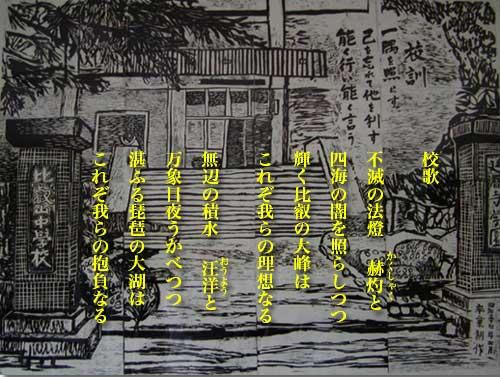 校訓
一隅を照らす
己を忘れて他を利す
能く行い能く言う
校歌
不滅の法燈 赫灼と
かくしゃく
四海の闇を照らしつつ
輝く比叡の大峰は
これぞ我らの理想なる
無辺の積水 汪洋と
おうよう
万象日夜うかべつつ
湛ふる琵琶の大湖は
これぞ我らの抱負なる
比叡山中学校
卒業制作